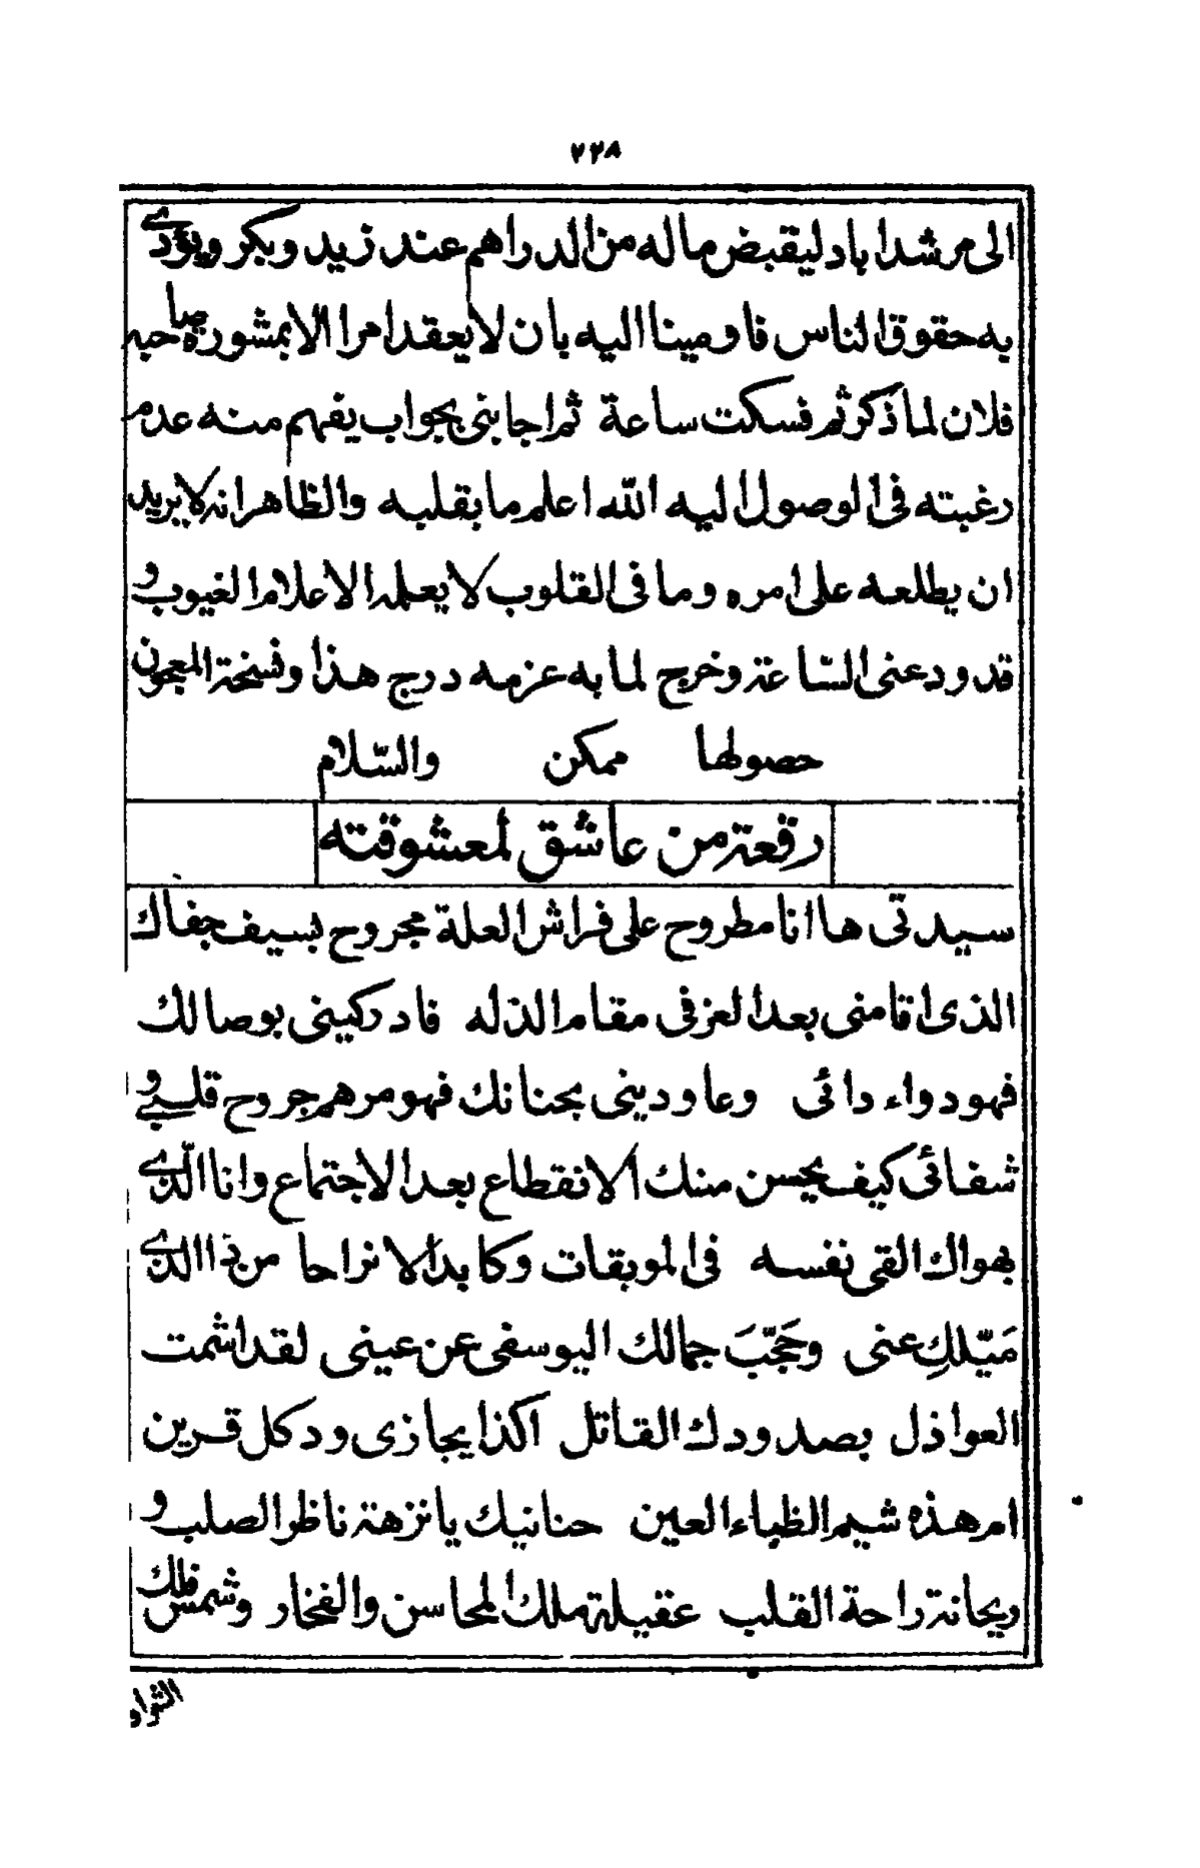 ٢٢٨
الى مرشداباد ليقبض ماله من الدراهم عند زيد وبكر ويؤدى
به حقوق الناس فاومينا اليه بان لا يعقد امرا الا بمشورة صاحبه
فلان لما ذكر ثم فسكت ساعة ثم اجابنى بجواب يفهم منه عدم
رغبته فى الوصول اليه الله اعلم ما بقلبه والظاهر انه لا يريد
ان يطلعه على امره وما فى القلوب لا يعلمه الا علام الغيوب و
قد ودعنى الساعة وخرج لما به عزمه درج هذا ونسخة المعجون
حصولها ممكن والسّلام
رقعة من عاشق لمعشوقته
سيدتى ها انا مطروح على فراش العلة مجروح بسيف جفاك
الذى اقامنى بعد العز فى مقام الذله فادركينى بوصالك
فهو دواء دائى وعاودينى بحنانك فهو مرهم جروح قلبى و
شفائى كيف يحسن منك الانقطاع بعد الاجتماع وانا الّذى
بهواك القى نفسه فى الموبقات وكابد الاتراحا من ذا الذى
مَيّلكِ عنى وحَجّبَ جمالك اليوسفى عن عينى لقد اشمت
العواذل بصدودك القاتل اكذا يجازى ود كل قرين
ام هذه شيم الظباء العين حنانيك يا نزهة ناظر الصلب و
ريحانة راحة القلب عقيلة ملك المحاسن والفخار وشمس فلك